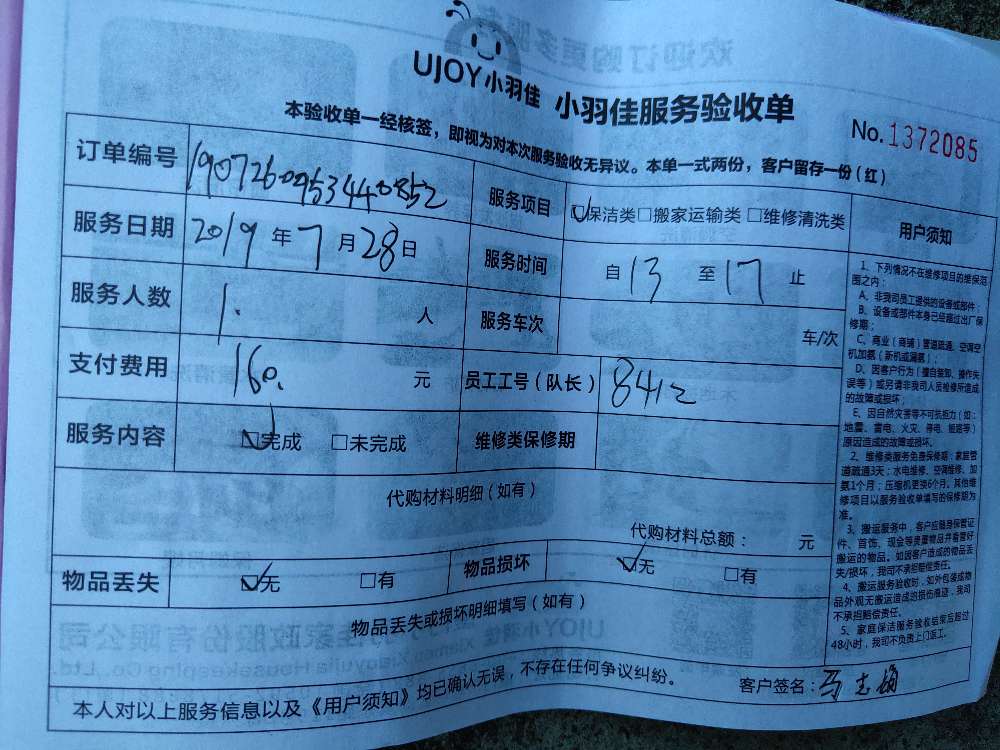 UJOY小羽佳 小羽佳服务验收单
No.1372085
本验收单一经核签，即视为对本次服务验收无异议。本单一式两份，客户留存一份（红）
订单编号 1907260953440852 服务项目 保洁类 □搬家运输类 □维修清洗类
服务日期 2019年7月28日 服务时间 自13至17止
服务人数 1. 人 服务车次 车/次
支付费用 160. 元 员工工号（队长） 8412
服务内容 完成 □未完成 维修类保修期
代购材料明细（如有）
代购材料总额： 元
物品丢失 无 □有 物品损坏 无 □有
物品丢失或损坏明细填写（如有）
本人对以上服务信息以及《用户须知》均已确认无误，不存在任何争议纠纷。 客户签名：马志
用户须知
1、下列情况不在维修项目的维保范
围之内：
A、非我司员工提供的设备或部件；
B、设备或部件本身已经超过出厂保
修期；
C、商业（商铺）管道疏通、空调空
机加氨（新机或漏氨）；
D、因客户行为（擅自装卸、操作失
误等）或另请非我司人员检修所造成
的故障或损坏；
E、因自然灾害等不可抗拒力（如：
地震、雷电、火灾、停电、鼠患等）
原因造成的故障或损坏。
2、维修类服务免费保修期：家庭管
道疏通3天；水电维修、空调维修、加
氨1个月；压缩机更换6个月。其他维
修项目以服务验收单填写的保修期为
准。
3、搬运服务中，客户应随身保管证
件、首饰、现金等贵重物品并看管好
搬运的物品。如因客户造成的物品丢
失/损坏，我司不承担赔偿责任。
4、搬运服务验收时，如外包装或物
品外观无搬运造成的损伤痕迹，我司
不承担赔偿责任。
5、家庭保洁服务验收结束后超过
48小时，我司不负责上门返工。